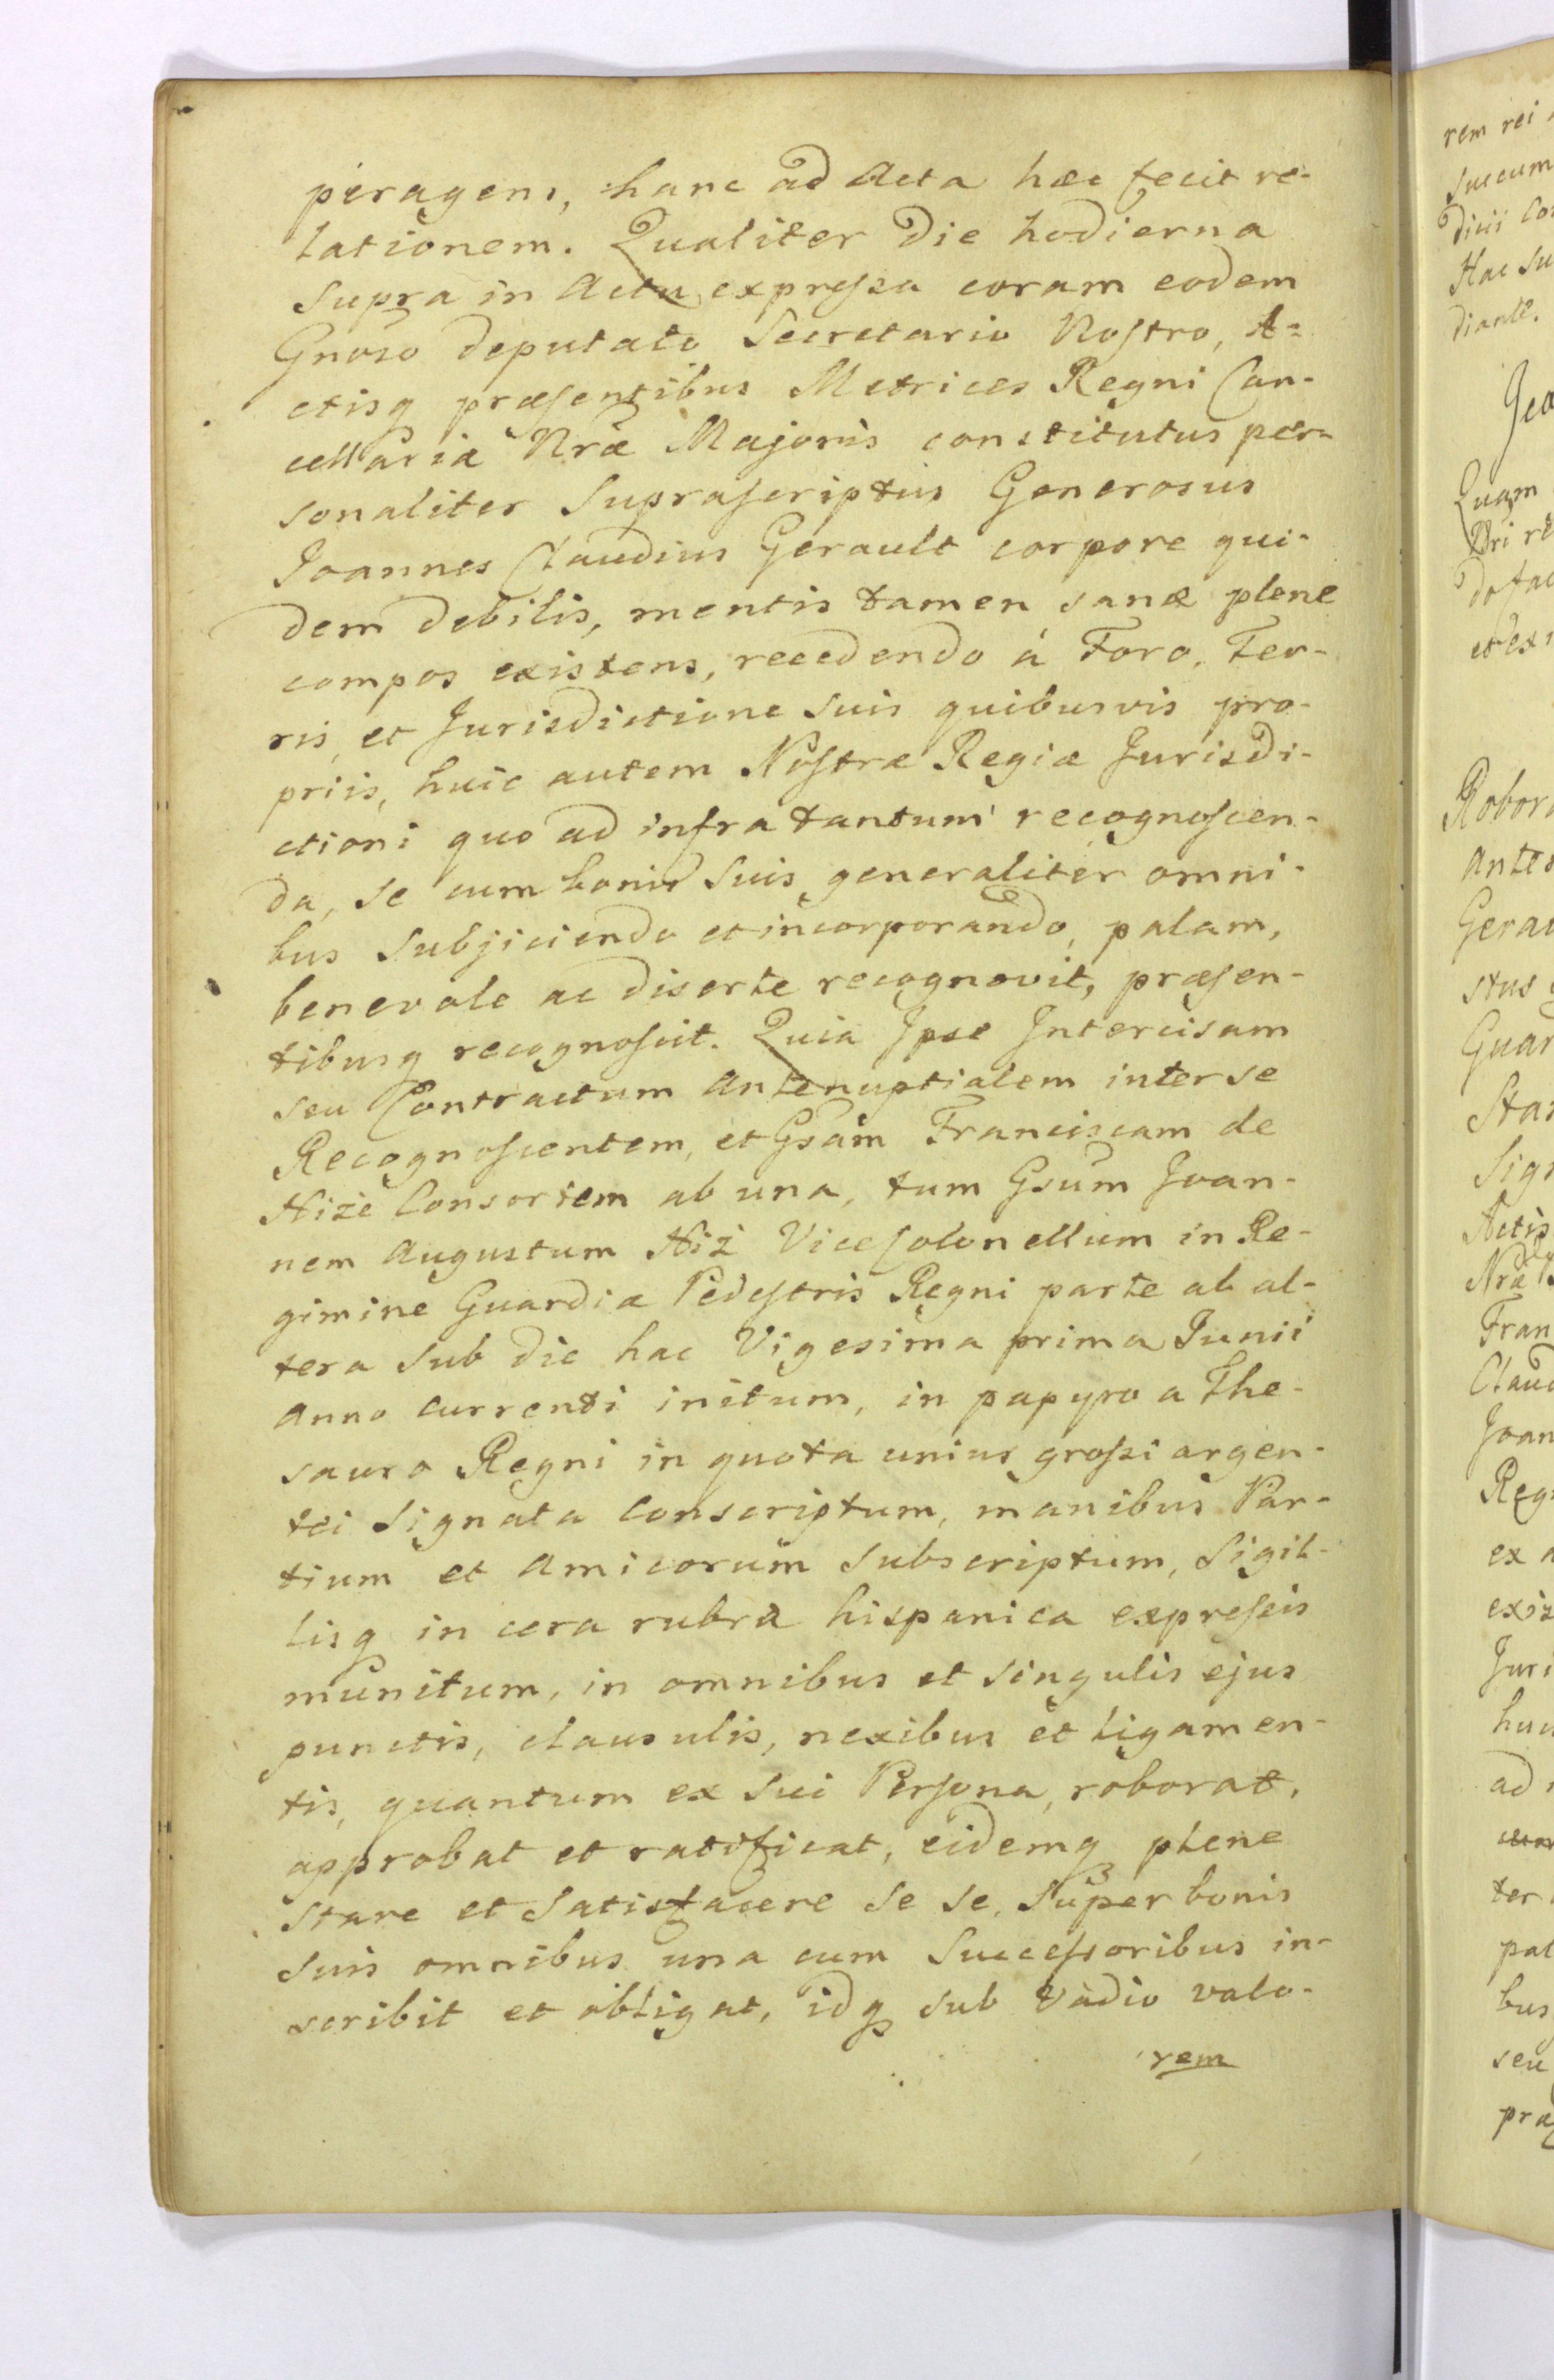 peragens, hanc ad Acta hæc fecit re-
lationem. Qualiter Die hodierna
Supra in Actu expreſsa coram eodem
Gnoso deputato Secretario Noſtro, A-
ctisq præſentibus Metrices Regni Can-
cellariæ Nræ Majoris constitutus per-
sonaliter Supraſcriptus Generosus
Joannes Claudius Gerault corpore qui-
dem debilis, mentis tamen sanæ plene
compos existens, recedendo á Foro, Ter-
ris, et Jurisdictione Suis quibusvis pro-
priis, huic autem Noſtræ Regiæ Jurisdi-
ctioni quo ad infra tantum recognoſcen-
da, se cum bonis Suis generaliter omni-
bus Subjiciendo et incorporando, palam,
benevole ac diserte recognovit, præſen-
tibusq recognoſcit. Quia Ipse Intercisam
seu Contractum Antenuptialem inter se
Recognoſcentem, et Gsam Franciscam de
Hize Consortem ab una, tum Gsum Joan-
nem Augustum Hiż ViceColonellum in Re-
gimine Guardiæ Pedeſtris Regni parte ab al-
tera Sub die hac Vigesima prima Junii
Anno currenti initum, in papyro a The-
sauro Regni in quota unius groſsi argen-
tei Signata Conscriptum, manibus Par-
tium et Amicorum Subscriptum, Sigil-
lisq in cera rubra hispanica expreſsis
munitum, in omnibus et Singulis ejus
punctis, clausulis, nexibus et ligamen-
tis, quantum ex Sui Perſona, roborat,
approbat et ratificat, eidemq plene
Stare et Satisfacere Se se, Super bonis
Suis omnibus una cum Succeſsoribus in-
scribit et obligat, idq Sub Vadio valo-
rem
rem rei
Succum
Hac Su
Quam
Robor
Antes
Gerau
stus
Guar
Star
Sig
Actis
Fran
Claud
Joan
Reg
ex a
exis
Juri
huic
ad
ter
pal
bus
seu
præ